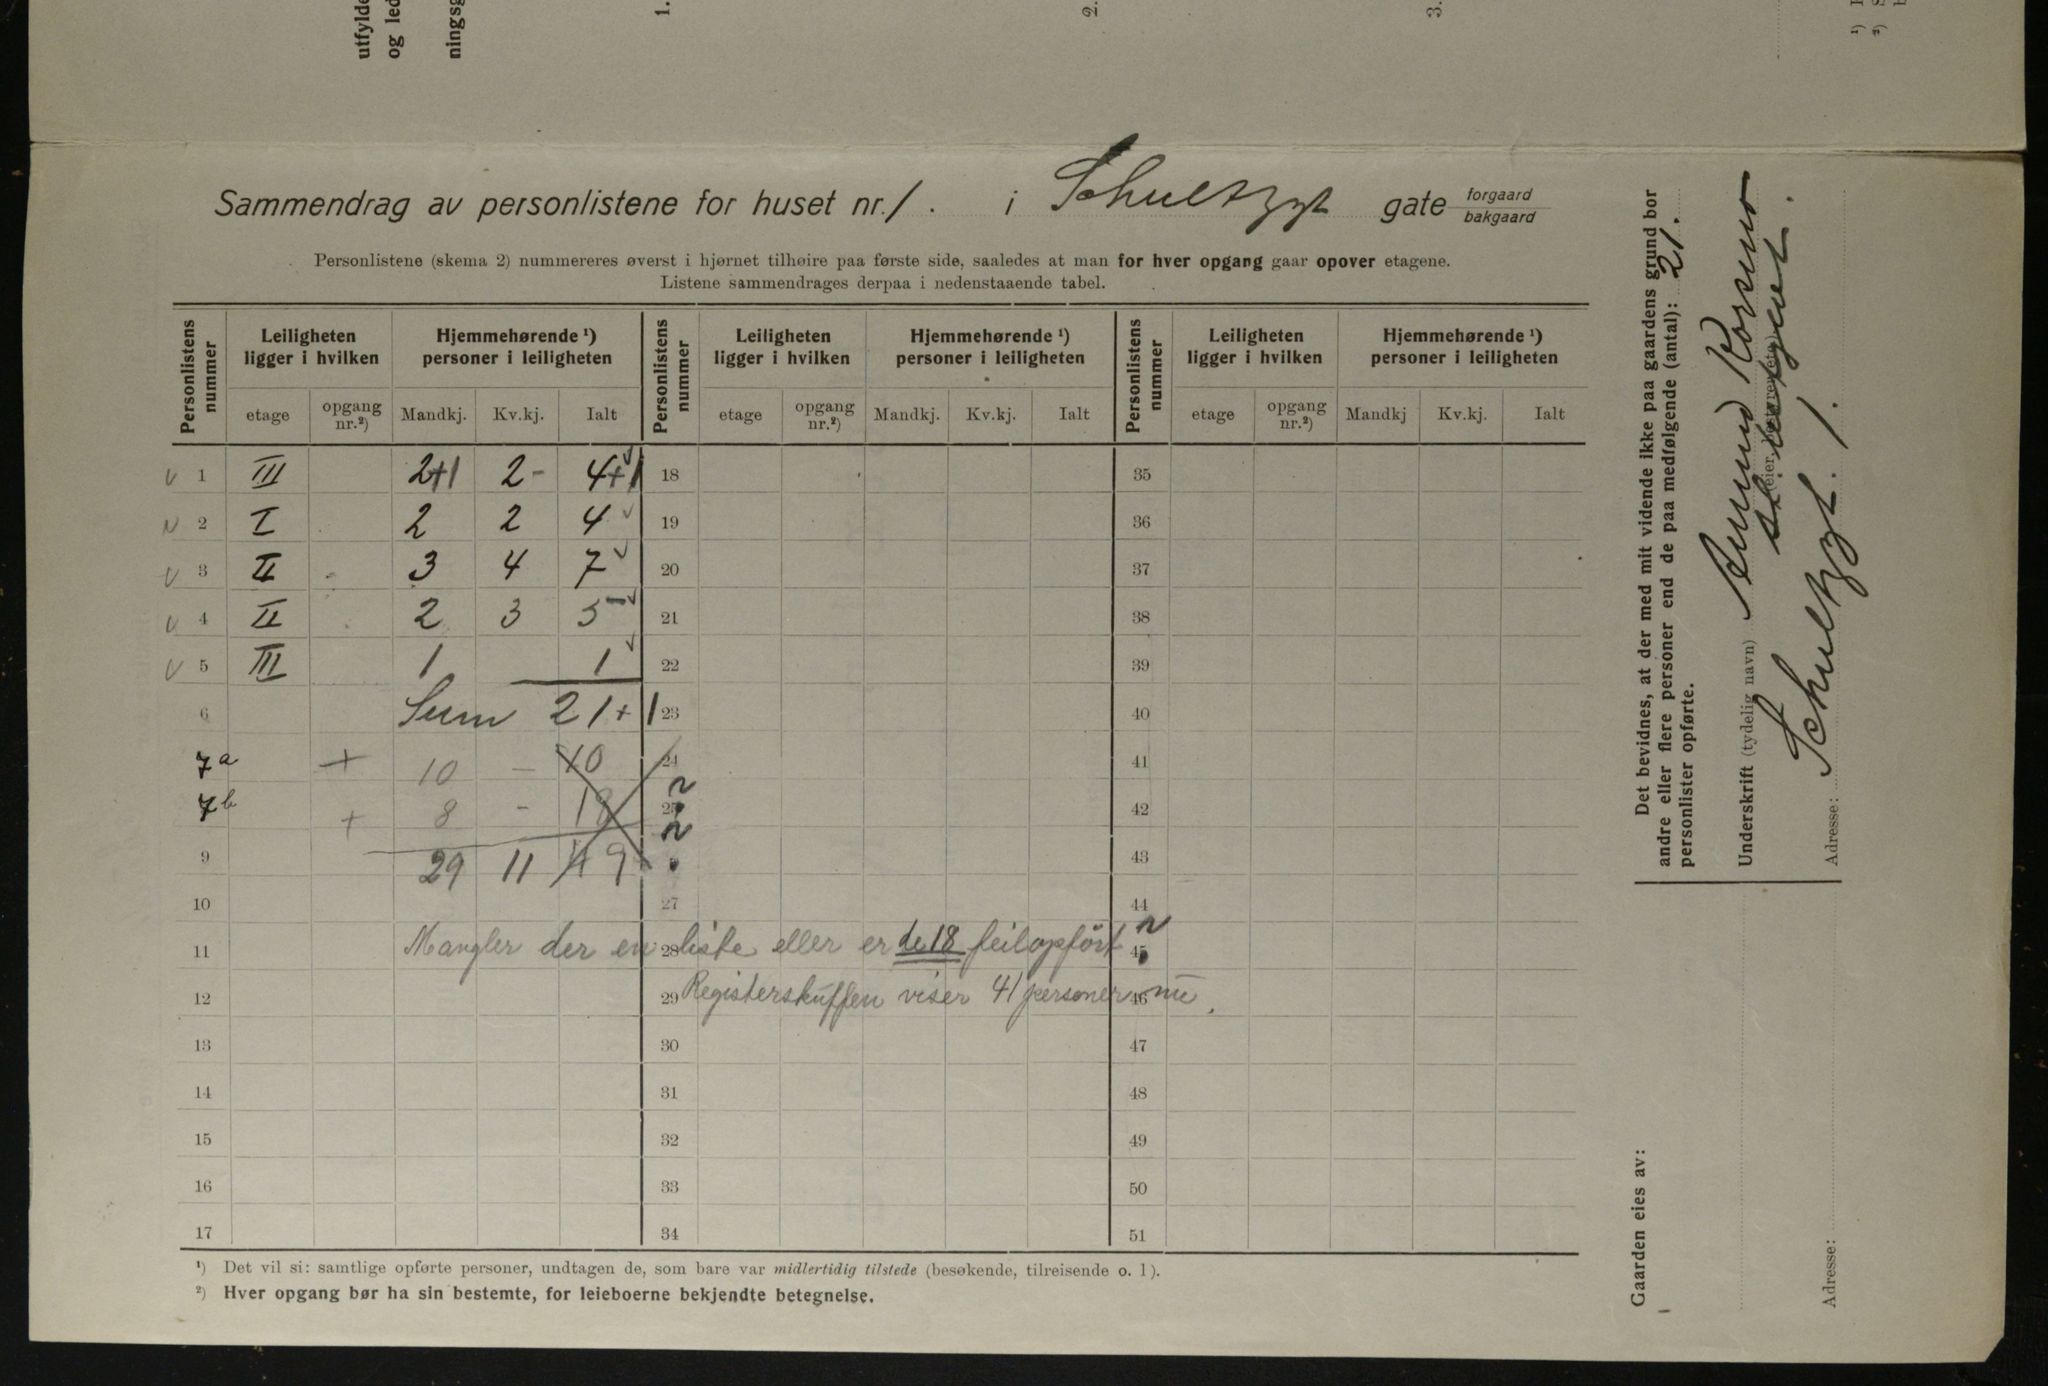 utfylde
og led
ningsg
1.
2.
3.
¹)
²)
Sammendrag av personlistene for huset nr. 1. i Schultzgt gate forgaard
bakgaard
Personlistene (skema 2) nummereres øverst i hjørnet tilhøire paa første side, saaledes at man for hver opgang gaar opover etagene.
Listene sammendrages derpaa i nedenstaaende tabel.
Personlistens nummer | Leiligheten ligger i hvilken | Hjemmehørende ¹) personer i leiligheten | Personlistens nummer | Leiligheten ligger i hvilken | Hjemmehørende ¹) personer i leiligheten | Personlistens nummer | Leiligheten ligger i hvilken | Hjemmehørende ¹) personer i leiligheten
etage | opgang nr.²) | Mandkj. | Kv.kj. | Ialt | etage | opgang nr.²) | Mandkj. | Kv.kj. | Ialt | etage | opgang nr.²) | Mandkj | Kv.kj. | Ialt
1 III 2+1 2 - 4+1 18 35
2 I 2 2 4 19 36
3 II 3 4 7 20 37
4 II 2 3 5 21 38
5 III 1 1 22 39
6 Sum 21+1 23 40
7a + 10 - 10 24 41
7b + 8 - 18 25 42
9 29 11 49 43
10 27 44
11 28 45
Mangler der en liste eller er de 18 feilopført
12 29 46
Registerskuffen viser 41 personer nu.
13 30 47
14 31 48
15 32 49
16 33 50
17 34 51
¹) Det vil si: samtlige opførte personer, undtagen de, som bare var midlertidig tilstede (besøkende, tilreisende o. l).
²) Hver opgang bør ha sin bestemte, for leieboerne bekjendte betegnelse.
Det bevidnes, at der med mit vidende ikke paa gaardens grund bor
andre eller flere personer end de paa medfølgende (antal): 21.
personlister opførte.
Underskrift (tydelig navn)
Adresse: Schultzgt. 1.
Gaarden eies av:
Adresse: